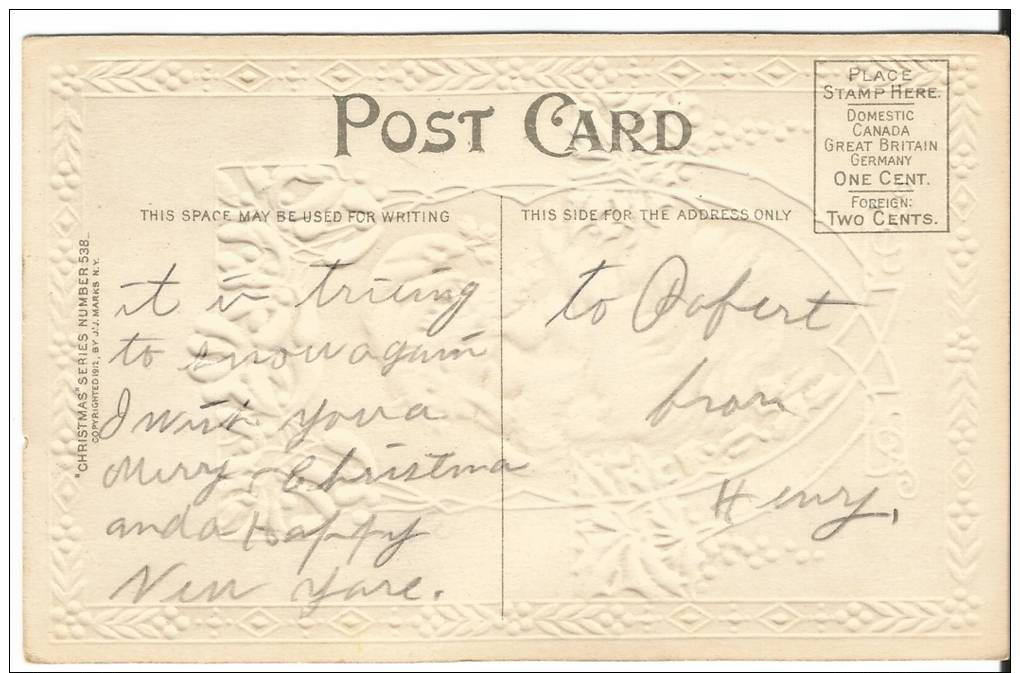 POST CARD
PLACE
STAMP HERE.
DOMESTIC
CANADA
GREAT BRITAIN
GERMANY
ONE CENT.
FOREIGN:
TWO CENTS.
THIS SPACE MAY BE USED FOR WRITING
THIS SIDE FOR THE ADDRESS ONLY
"CHRISTMAS" SERIES NUMBER 538
COPYRIGHTED 1912, BY J.J. MARKS N.Y.
it is trieing
to snow again
I wish you a
Merry Christma
and a Happy
New Yare.
to Robert
from
Henry,